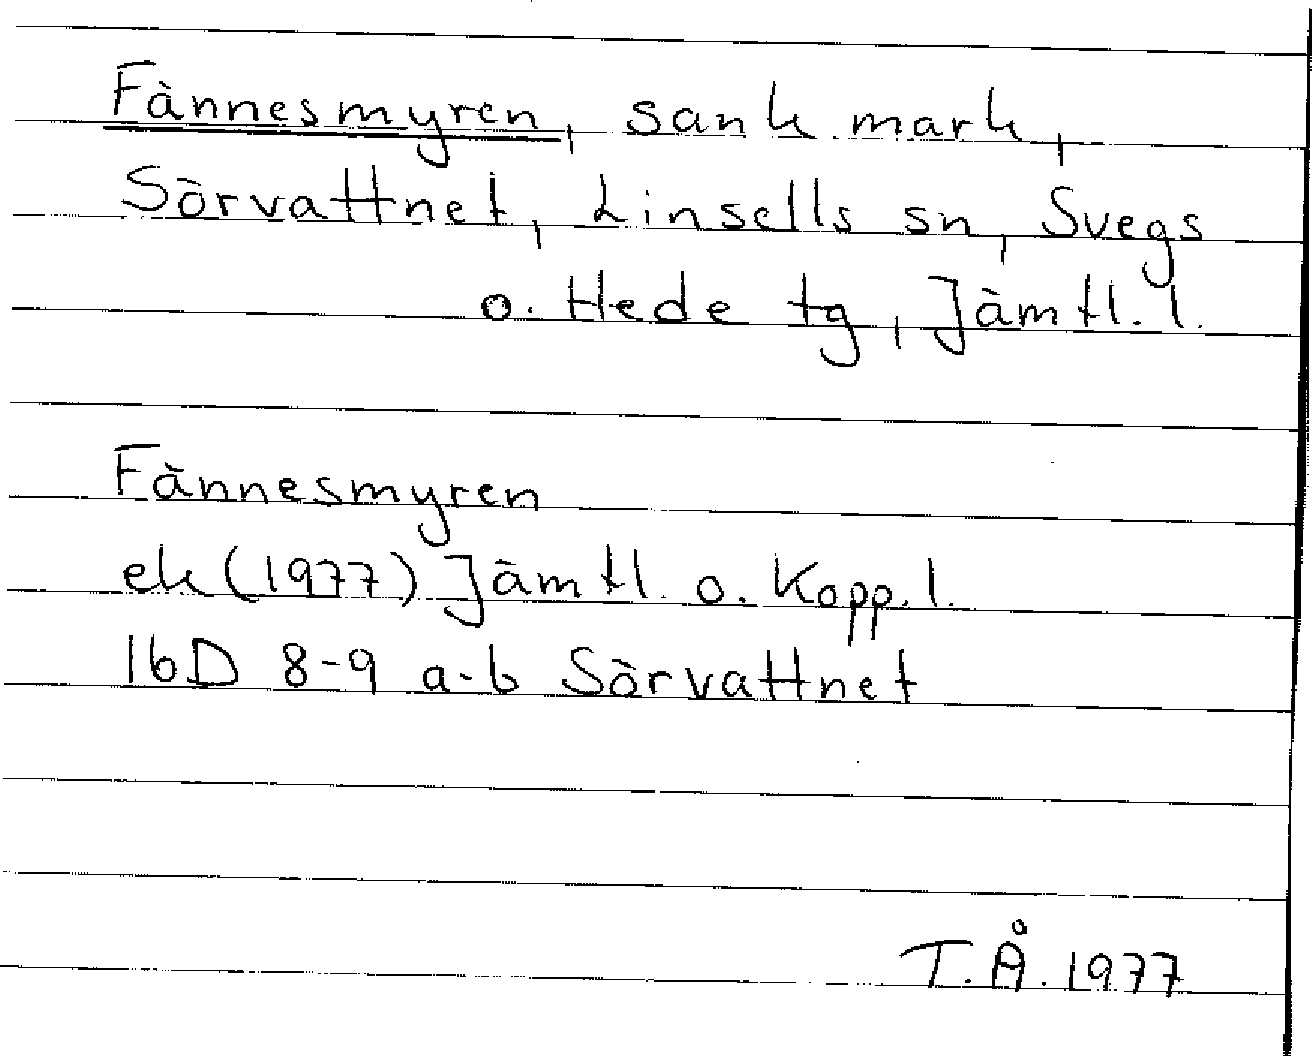 Fännesmyren, sank mark,
Sörvattnet, Linsells sn, Svegs
o. Hede tg, Jämtl. l.
Fännesmyren
ek (1977) Jämtl. o. Kopp. l.
16D 8-9 a-b Sörvattnet
T.Å. 1977